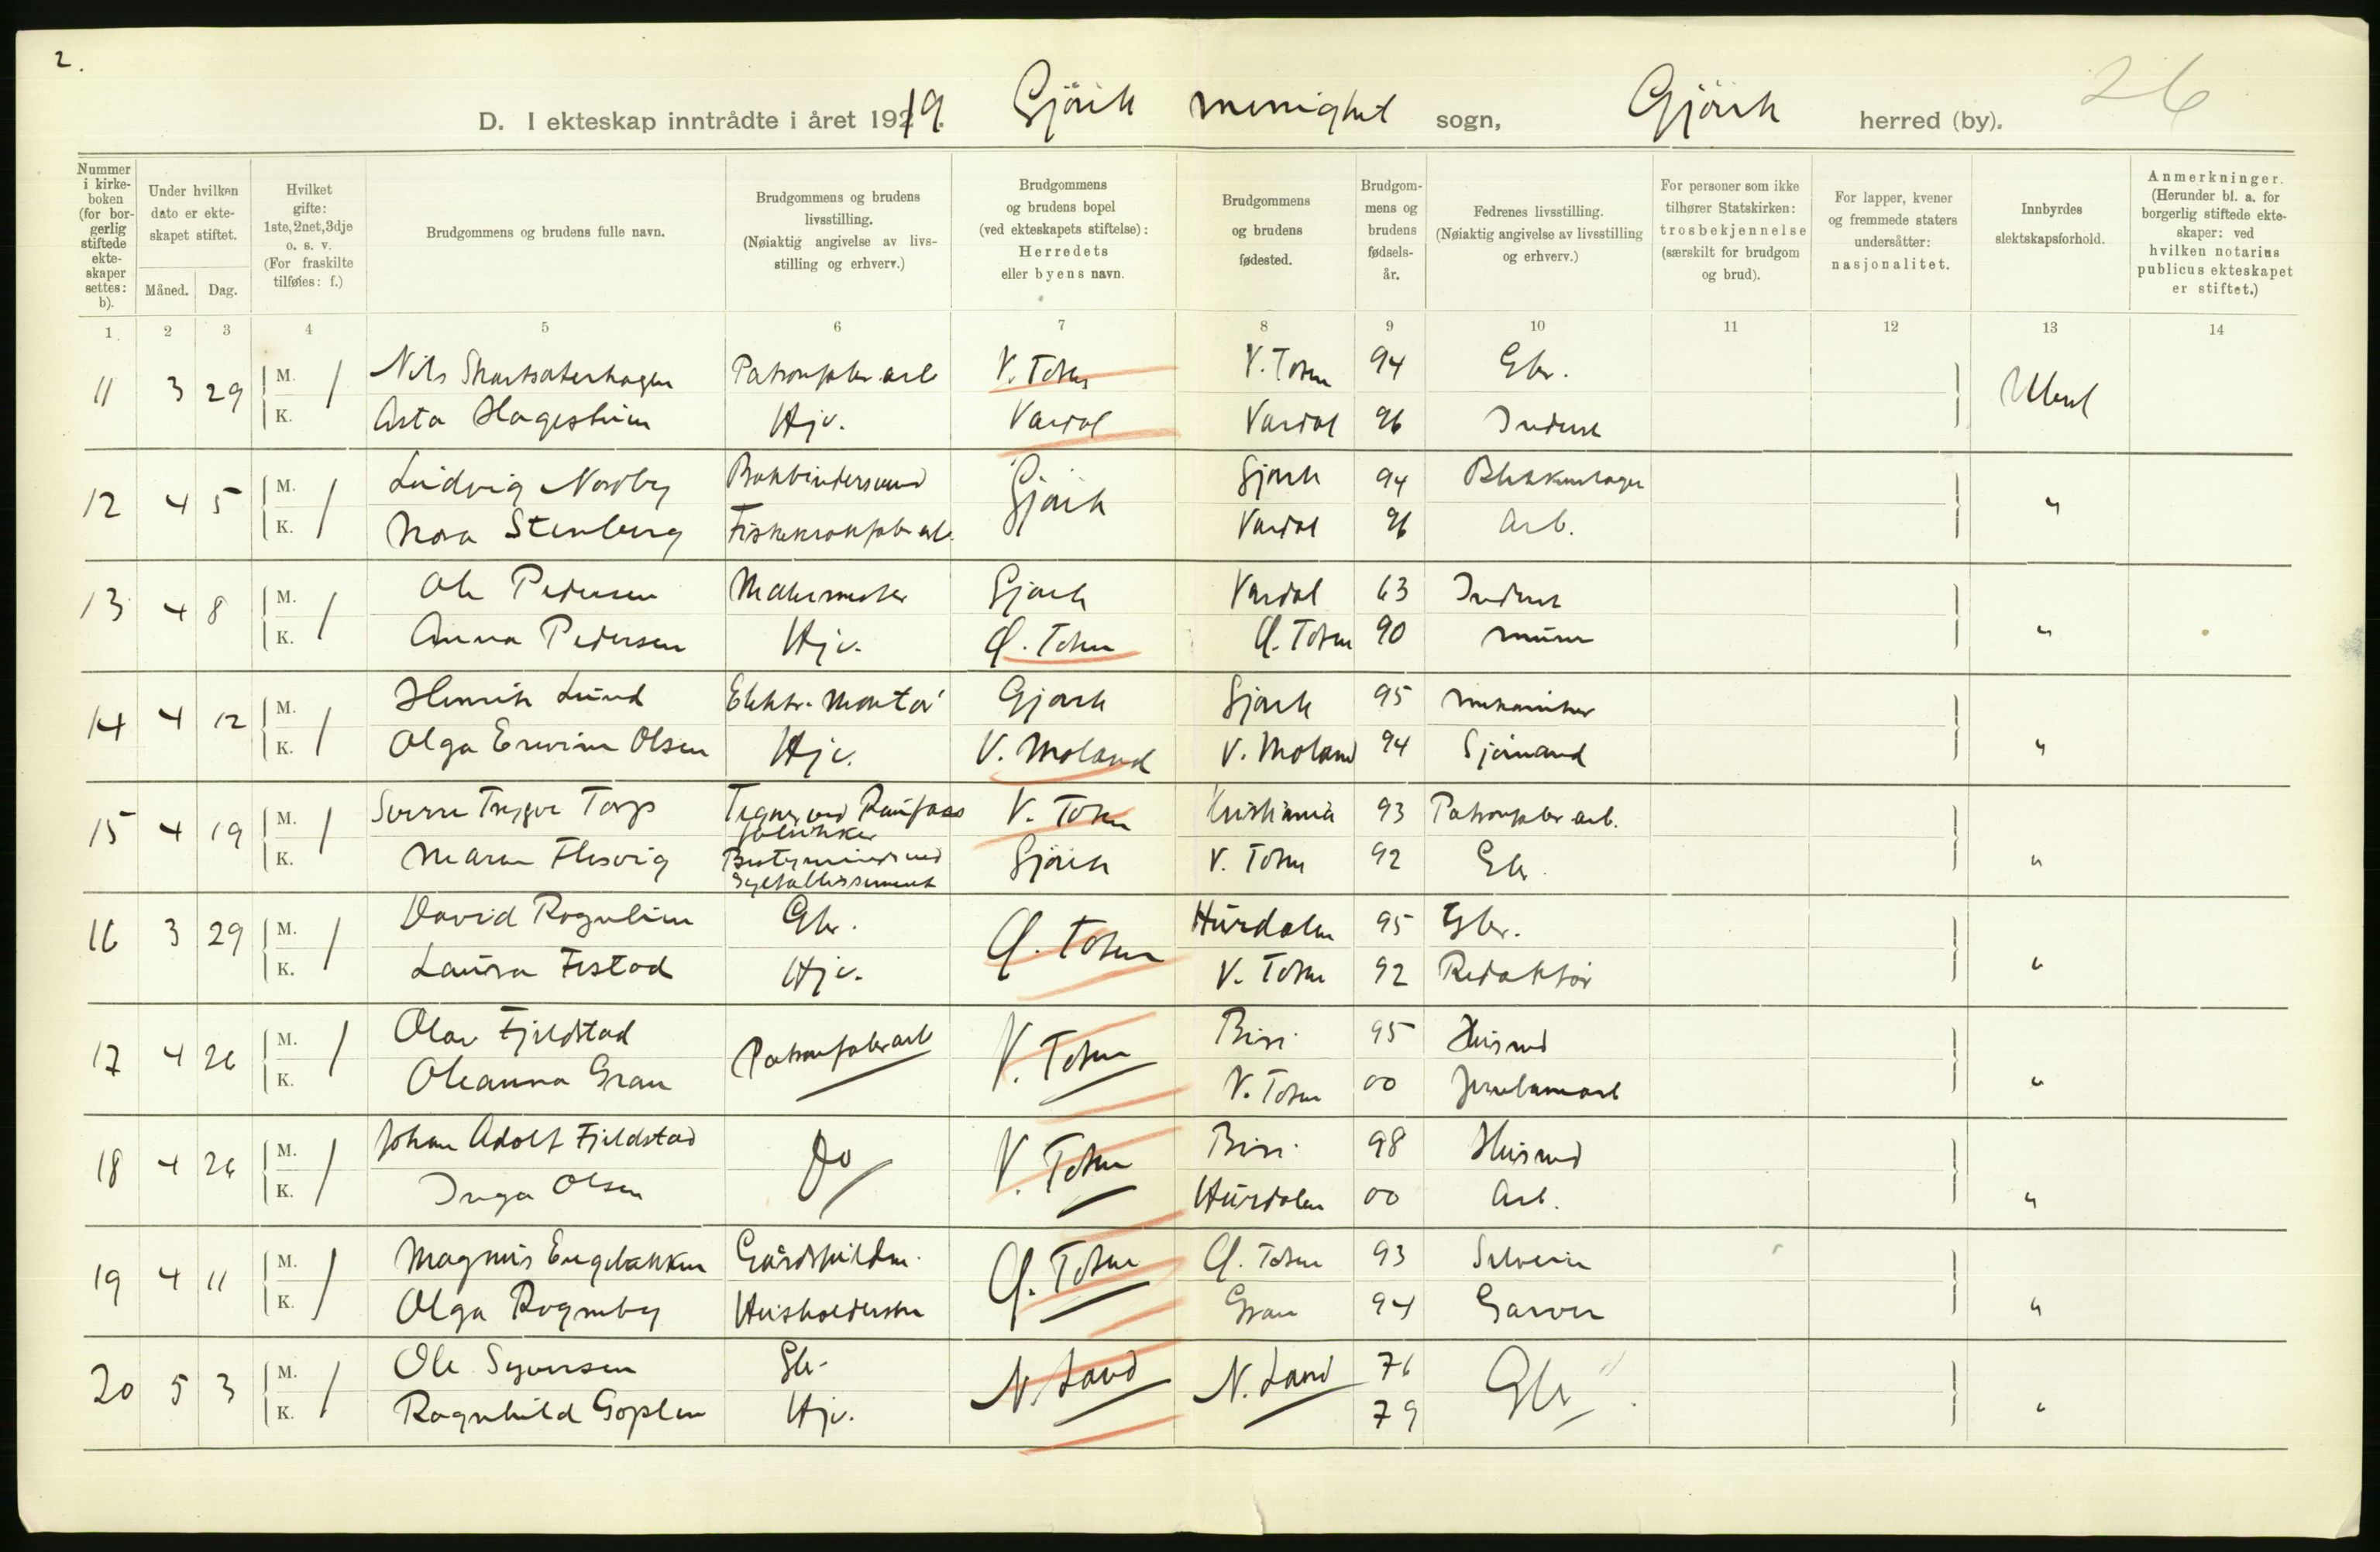 2.
D. I ekteskap inntrådte i året 19219. Gjövik menighet sogn, Gjövik herred (by). 26
Nummer i kirkeboken (for borgerlig stiftede ekteskaper settes: b).
Under hvilken dato er ekteskapet stiftet.
Måned. Dag.
Hvilket gifte: 1ste, 2net, 3dje o. s. v. (For fraskilte tilføies: f.)
Brudgommens og brudens fulle navn.
Brudgommens og brudens livsstilling. (Nøiaktig angivelse av livsstilling og erhverv.)
Brudgommens og brudens bopel (ved ekteskapets stiftelse): Herredets eller byens navn.
Brudgommens og brudens fødested.
Brudgommens og brudens fødselsår.
Fedrenes livsstilling. (Nøiaktig angivelse av livsstilling og erhverv.)
For personer som ikke tilhører Statskirken: trosbekjennelse (særskilt for brudgom og brud).
For lapper, kvener og fremmede staters undersåtter: nasjonalitet.
Innbyrdes slektskapsforhold.
Anmerkninger. (Herunder bl. a. for borgerlig stiftede ekteskaper: ved hvilken notarius publicus ekteskapet er stiftet.)
1. 2 3 4 5 6 7 8 9 10 11 12 13 14
11 3 29 M. / Nils Patronfabr. arb V. Toten V. Toten 94 Gbr. Ubesl
K. Asta Hageshim Hjv. Vardal Vardal 96 Inderst
12 4 5 M. / Ludvig Nordby Bokbindersvend Gjövik Gjövik 94 Blikkenslager "
K. Nora Stenberg Fiskekrokfabr arb. Vardal 96 Arb.
13 4 8 M. / Ole Pedersen Malermester Gjövik Vardal 63 Inderst "
K. Anna Pedersen Hjv. Ø. Toten Ø. Toten 90 murer
14 4 12 M. / Henrik Lund Elektr. Montör Gjövik Gjövik 95 mekaniker "
K. Olga Ervine Olsen Hjv. V. Moland V. Moland 94 Sjömand
15 4 19 M. / Sverre Trygve Torp Tegner ved Raufoss fabrikker V. Toten Kristiania 93 Patronfabr arb. "
K. Maren Flesvig Bestyrerinde ved Syetablissement Gjövik V. Toten 92 Gbr
16 3 29 M. / David Rognlien Gbr. Ø. Toten Hurdalen 95 Gbr. "
K. Laura Festad Hjv. V. Toten 92 Redaktör
17 4 26 M. / Olav Fjeldstad Patronfabr arb V. Toten Biri 95 Husmd "
K. Oleanna Gran V. Toten 00 Jernbanearb
18 4 26 M. / Johan Adolf Fjeldstad Do V. Toten Biri 98 Husmd "
K. Inga Olsen Hurdalen 00 Arb.
19 4 11 M. / Magnus Engebakken Ø. Toten Ø. Toten 93 Selveier "
K. Olga Rogneby Husholderske Gran 94 Garver
20 5 3 M. / Ole Syversen Gbr. N. Land N. Land 76 Gbr "
K. Ragnhild Goplen Hjv. 79